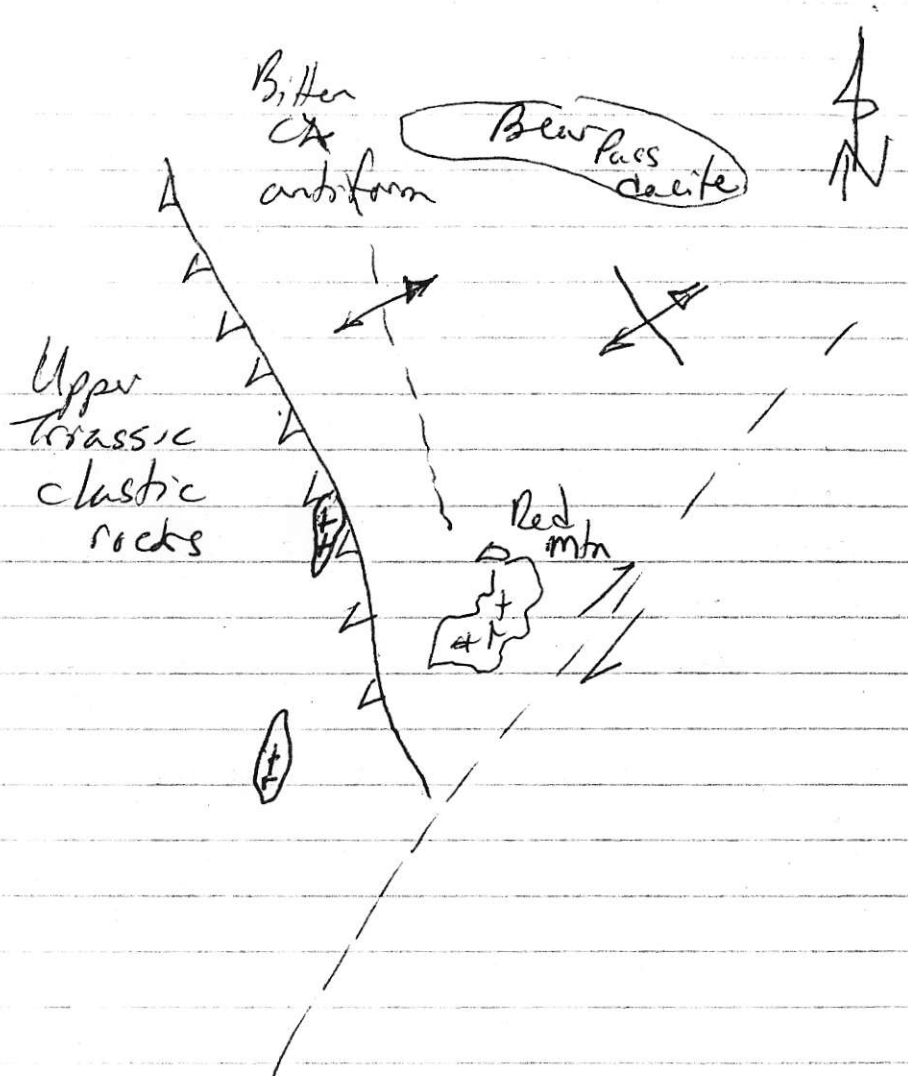 Bitter
Ck
antiform
Bear Pass
dacite
N
Upper
Triassic
clastic
rocks
Red
mtn